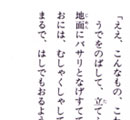 「ええ、こんなもの、こ
うでをのばして、立て
地面にバサリとなげすてて
おには、むしゃくしゃして
まるで、はしでもおるよ